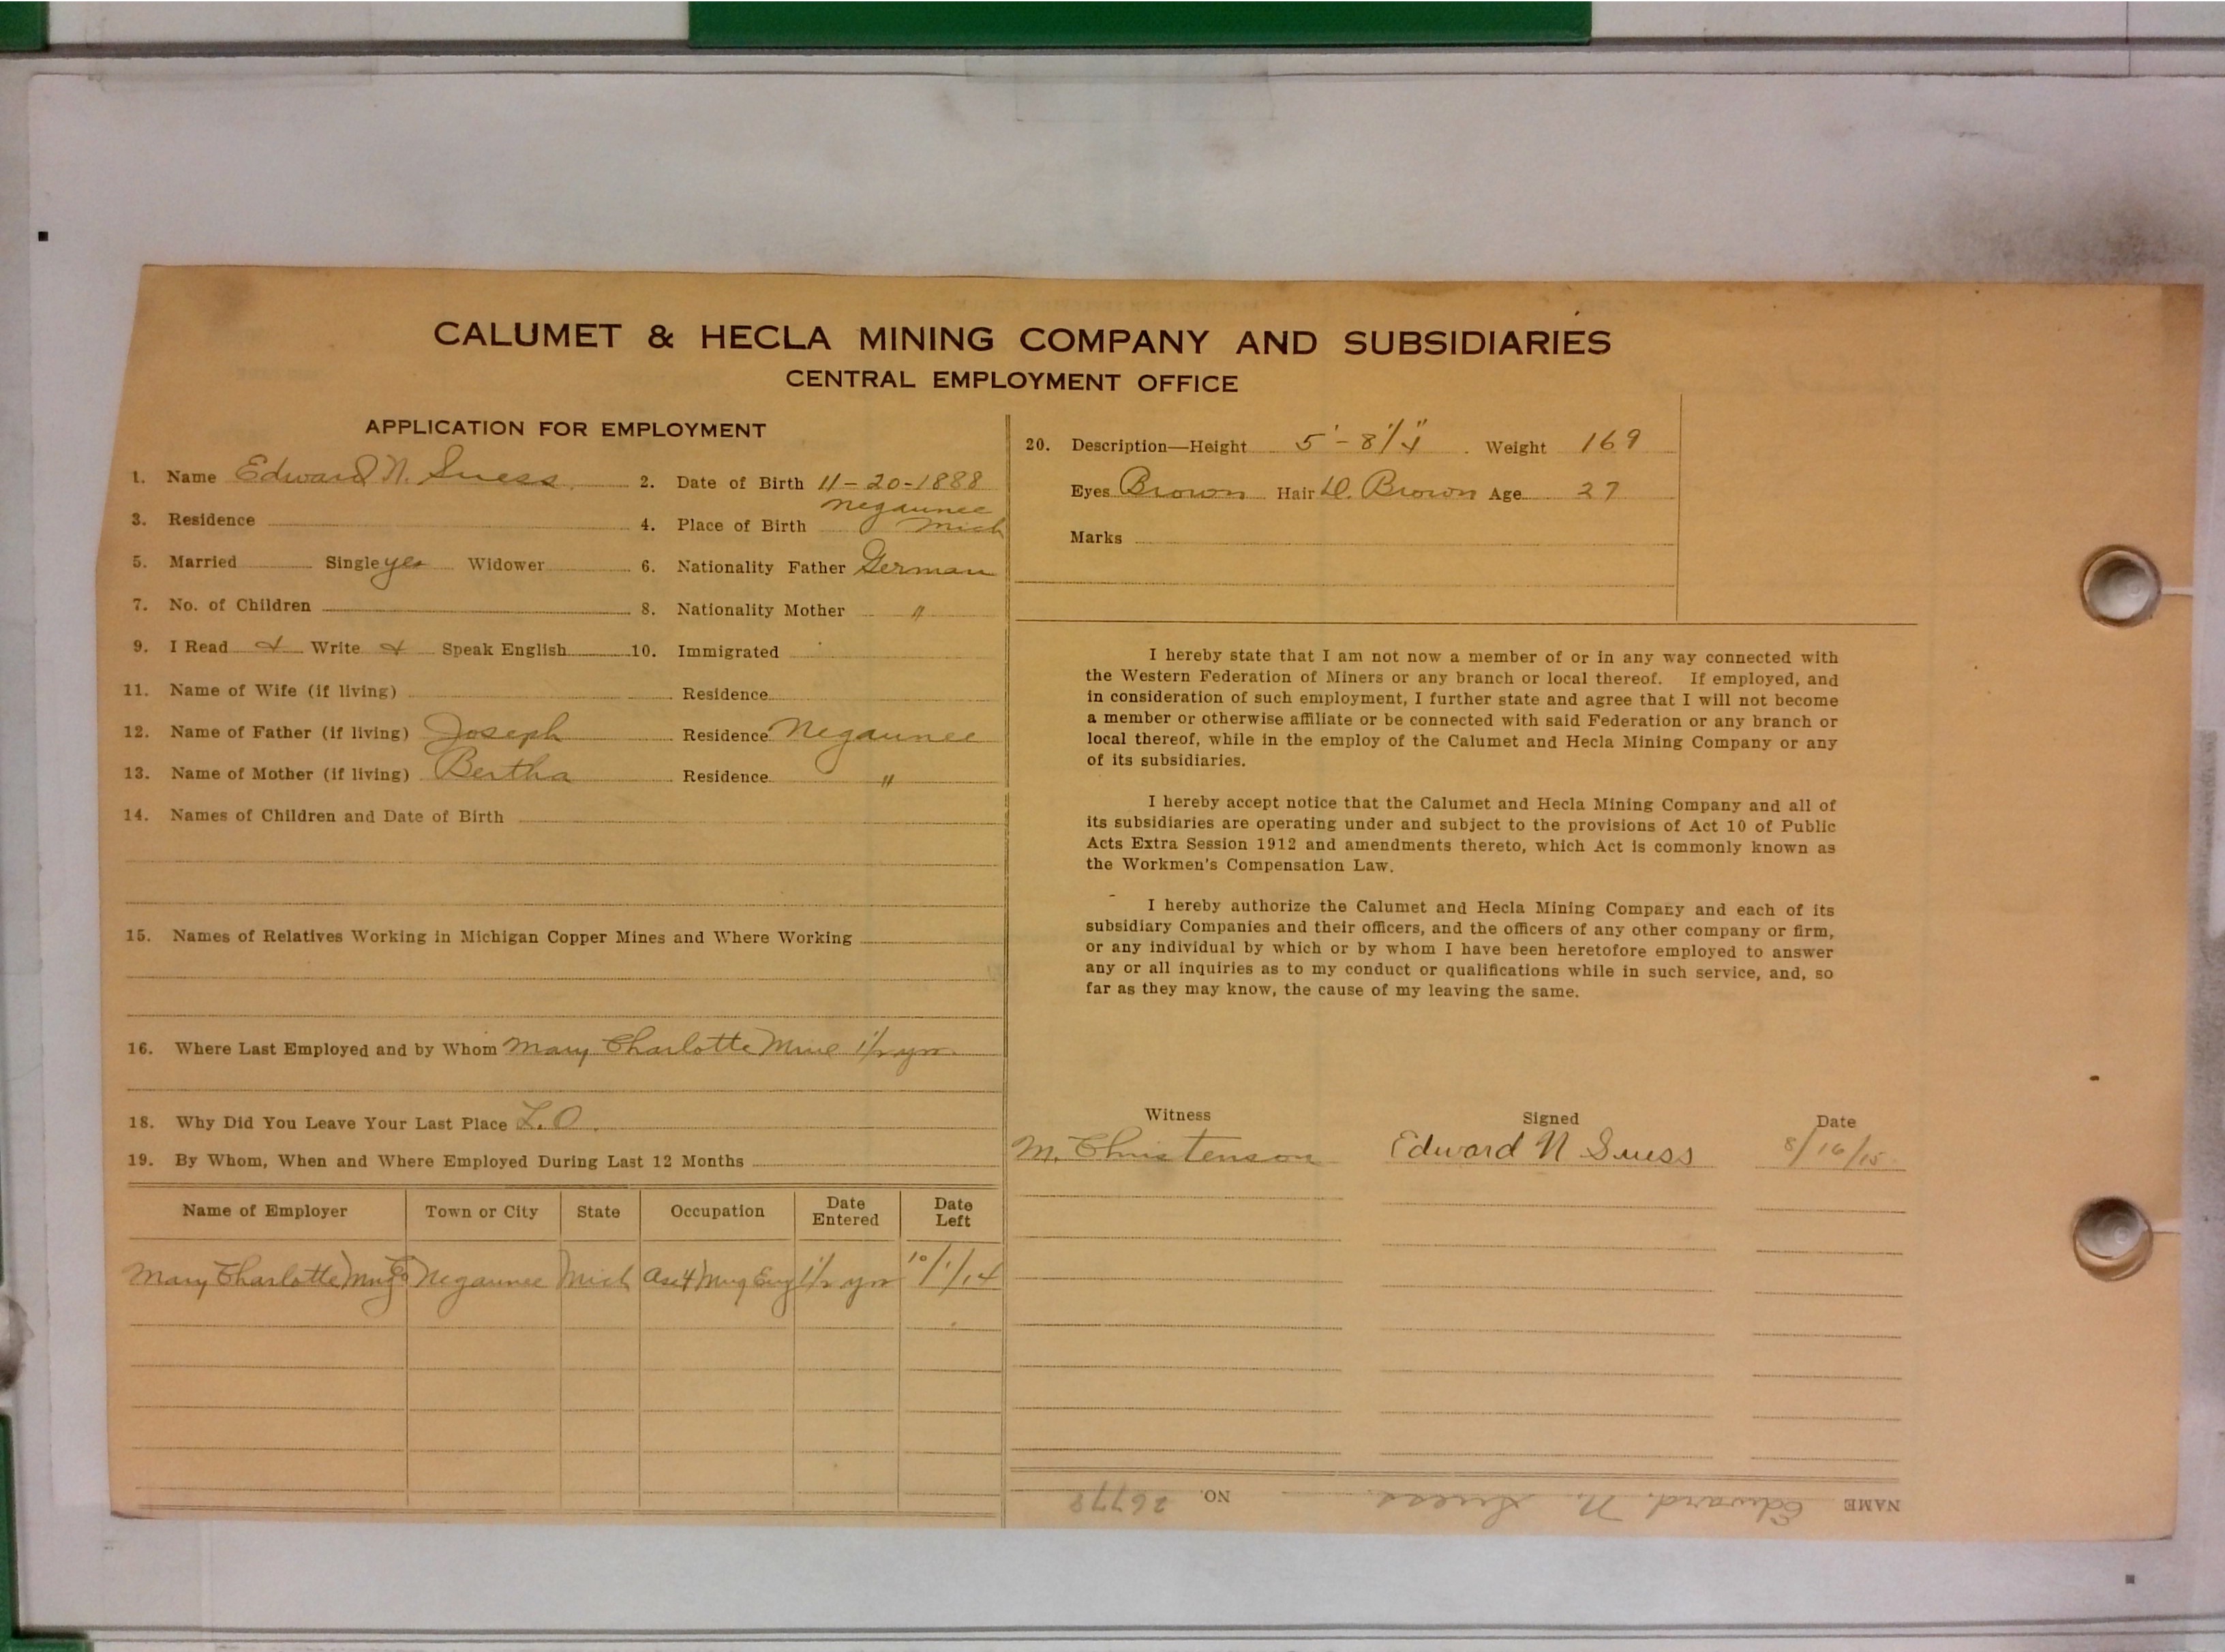 CALUMET & HECLA MINING COMPANY AND SUBSIDIARIES
CENTRAL EMPLOYMENT OFFICE
APPLICATION FOR EMPLOYMENT
1. Name Edward N. Suess 2. Date of Birth 11-20-1888
3. Residence 4. Place of Birth Negaunee Mich
5. Married Single yes Widower 6. Nationality Father German
7. No. of Children 8. Nationality Mother "
9. I Read & Write & Speak English 10. Immigrated
11. Name of Wife (if living) Residence
12. Name of Father (if living) Joseph Residence Negaunee
13. Name of Mother (if living) Bertha Residence "
14. Names of Children and Date of Birth
15. Names of Relatives Working in Michigan Copper Mines and Where Working
16. Where Last Employed and by Whom Mary Charlotte Mine 1/2 yr
18. Why Did You Leave Your Last Place L.O.
19. By Whom, When and Where Employed During Last 12 Months
Name of Employer Town or City State Occupation Date Entered Date Left
Mary Charlotte Mng Co Negaunee Mich Asst Mng Eng 1/2 yr 10/1/14
20. Description—Height 5'-8 1/4" Weight 169
Eyes Brown Hair D. Brown Age 27
Marks
I hereby state that I am not now a member of or in any way connected with
the Western Federation of Miners or any branch or local thereof. If employed, and
in consideration of such employment, I further state and agree that I will not become
a member or otherwise affiliate or be connected with said Federation or any branch or
local thereof, while in the employ of the Calumet and Hecla Mining Company or any
of its subsidiaries.
I hereby accept notice that the Calumet and Hecla Mining Company and all of
its subsidiaries are operating under and subject to the provisions of Act 10 of Public
Acts Extra Session 1912 and amendments thereto, which Act is commonly known as
the Workmen's Compensation Law.
I hereby authorize the Calumet and Hecla Mining Company and each of its
subsidiary Companies and their officers, and the officers of any other company or firm,
or any individual by which or by whom I have been heretofore employed to answer
any or all inquiries as to my conduct or qualifications while in such service, and, so
far as they may know, the cause of my leaving the same.
Witness Signed Date
M. Christenson Edward N Suess 8/16/15
NAME Edward. N. Suess. NO. 26778